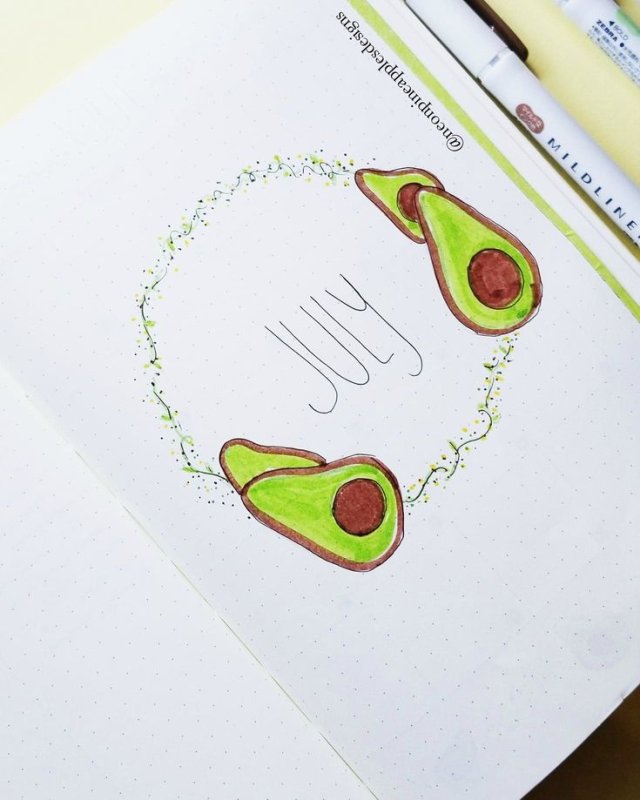 @neonpineapplesdesigns
JULY
MILDLINER
ZEBRA